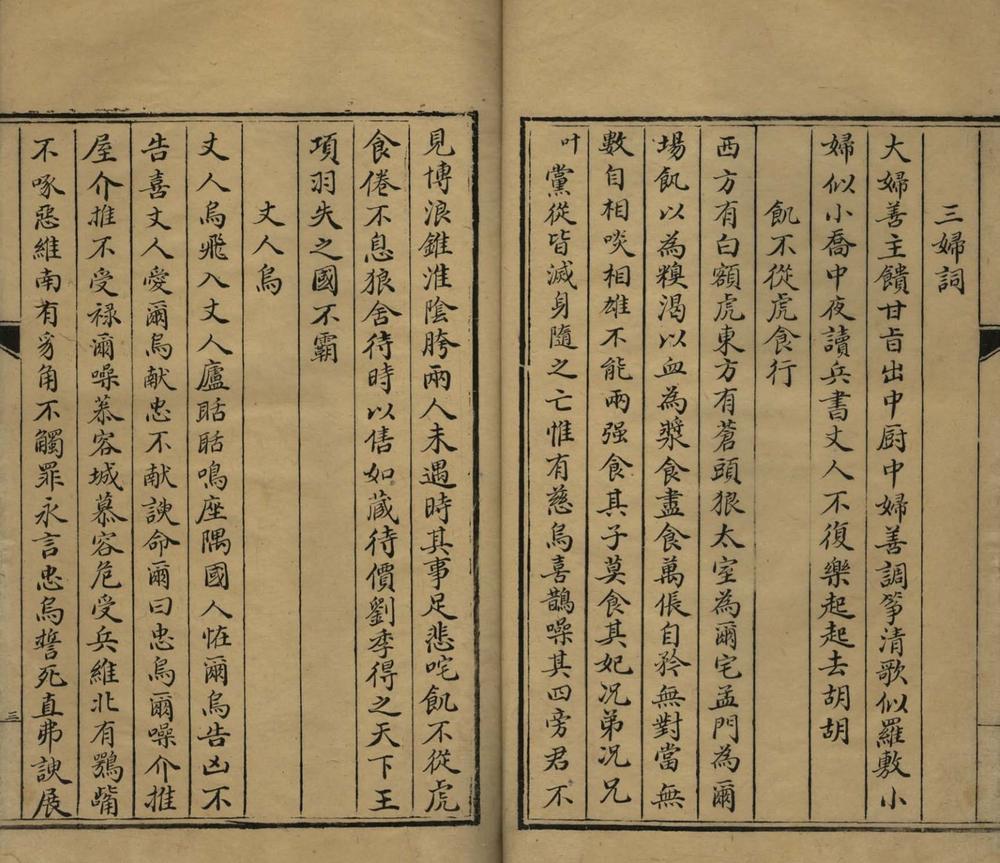 三婦詞
大婦善主饋甘旨出中厨中婦善調筝清歌似羅敷小
婦似小喬中夜讀兵書丈人不復樂起起去胡胡
飢不從虎食行
西方有白額虎東方有蒼頭狼太室為爾宅孟門為爾
場飢以為糗渴以血為漿食盡食萬倀自矜無對當無
數自相啖相雄不能兩强食其子莫食其妃况弟况兄
叶黨從皆滅身隨之亡惟有慈烏喜鵲噪其四旁君不
見博浪錐淮陰胯兩人未遇時其事足悲咤飢不從虎
食倦不息狼舍待時以售如藏待價劉季得之天下王
項羽失之國不霸
丈人烏
丈人烏飛入丈人廬聒聒鳴座隅國人恠爾烏告凶不
告喜丈人愛爾烏献忠不献諛命爾曰忠烏爾噪介推
屋介推不受禄爾噪慕容城慕容危受兵維北有鶚嘴
不啄惡維南有豸角不觸罪永言忠烏誓死直弗諛展
三